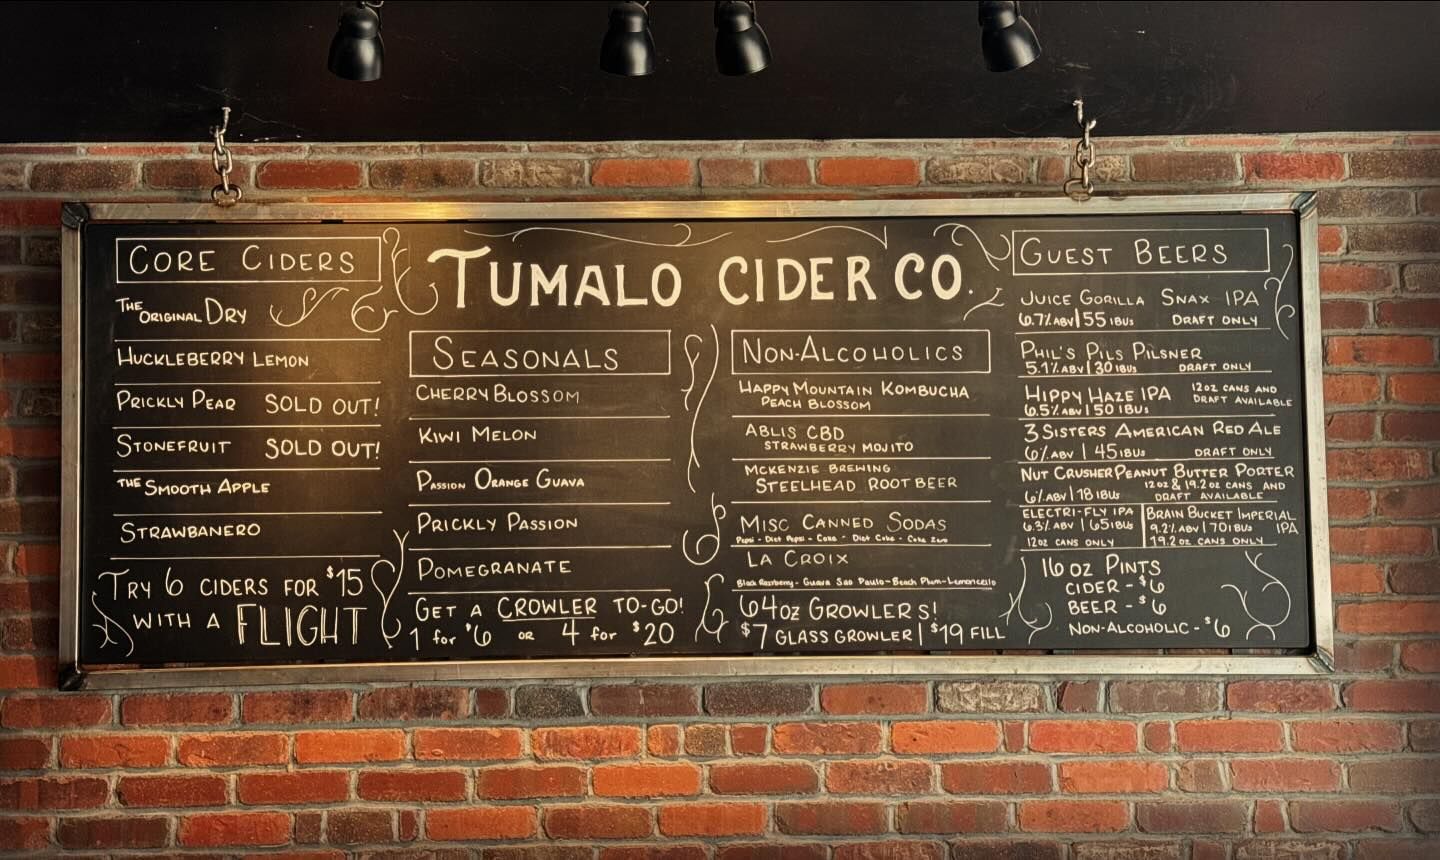 TUMALO CIDER CO.
CORE CIDERS
THE ORIGINAL DRY
HUCKLEBERRY LEMON
PRICKLY PEAR SOLD OUT!
STONEFRUIT SOLD OUT!
THE SMOOTH APPLE
STRAWBANERO
TRY 6 CIDERS FOR $15
WITH A FLIGHT
SEASONALS
CHERRY BLOSSOM
KIWI MELON
PASSION ORANGE GUAVA
PRICKLY PASSION
POMEGRANATE
GET A CROWLER TO-GO!
1 for $6 OR 4 for $20
NON-ALCOHOLICS
HAPPY MOUNTAIN KOMBUCHA
PEACH BLOSSOM
ABLIS CBD
STRAWBERRY MOJITO
MCKENZIE BREWING
STEELHEAD ROOT BEER
MISC CANNED SODAS
Pepsi - Diet Pepsi - Coke - Diet Coke - Coke Zero
LA CROIX
Black Razzberry - Guava Sao Paulo - Beach Plum - Lemoncello
64oz GROWLERS!
$7 GLASS GROWLER | $19 FILL
GUEST BEERS
JUICE GORILLA SNAX IPA
6.7% ABV | 55 IBUs DRAFT ONLY
PHIL'S PILS PILSNER
5.1% ABV | 30 IBUs DRAFT ONLY
HIPPY HAZE IPA 12OZ CANS AND
6.5% ABV | 50 IBUs DRAFT AVAILABLE
3 SISTERS AMERICAN RED ALE
6% ABV | 45 IBUs DRAFT ONLY
NUT CRUSHER PEANUT BUTTER PORTER
12oz & 19.2 oz CANS AND
6% ABV | 18 IBUs DRAFT AVAILABLE
ELECTRI-FLY IPA
6.3% ABV | 65 IBUs
12oz CANS ONLY
BRAIN BUCKET IMPERIAL
9.2% ABV | 70 IBUs IPA
19.2 oz CANS ONLY
16 OZ PINTS
CIDER - $6
BEER - $6
NON-ALCOHOLIC - $6